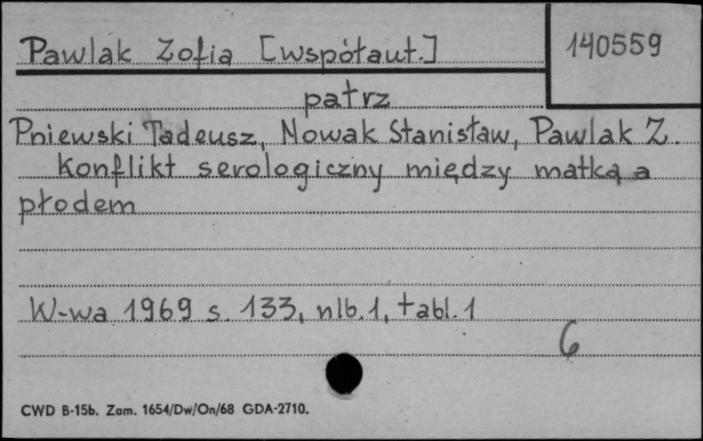 Pawlak Zofia [współaut.]
140559
patrz
Pniewski Tadeusz, Nowak Stanisław, Pawlak Z.
Konflikt serologiczny między matką a
płodem
W-wa 1969 s. 133, nlb. 1, tabl. 1
6
CWD B-15b. Zam. 1654/Dw/On/68 GDA-2710.